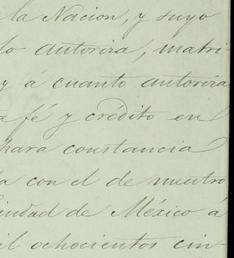 la Nacion, y suyo
lo autoriza, matri-
y á cuanto autoriza
a fé y crédito en
hara constancia
da con el de nuestro
Ciudad de México á
il ochocientos cin